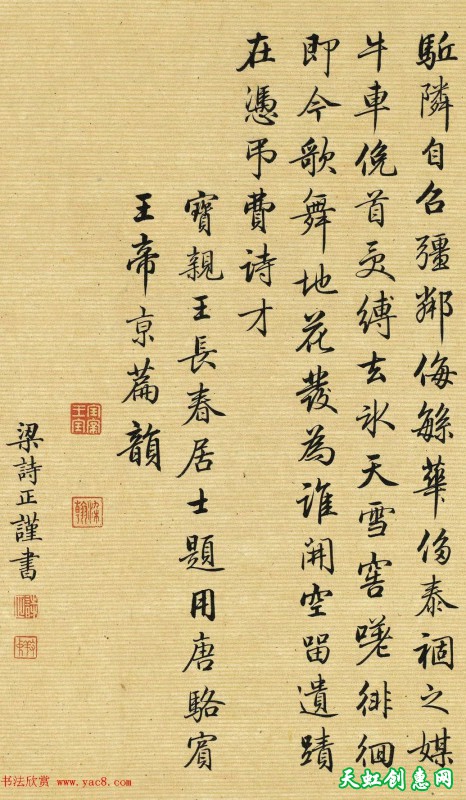 駈隣自召彊鄰侮繇華侈泰禍之媒
牛車俛首受縛去氷天雪窖嗟徘徊
即今歌舞地花發為誰開空留遺蹟
在憑弔費詩才
寶親王長春居士題用唐駱賓
王帝京篇韻
梁詩正謹書
书法欣赏 www.yac8.com
天虹创惠网